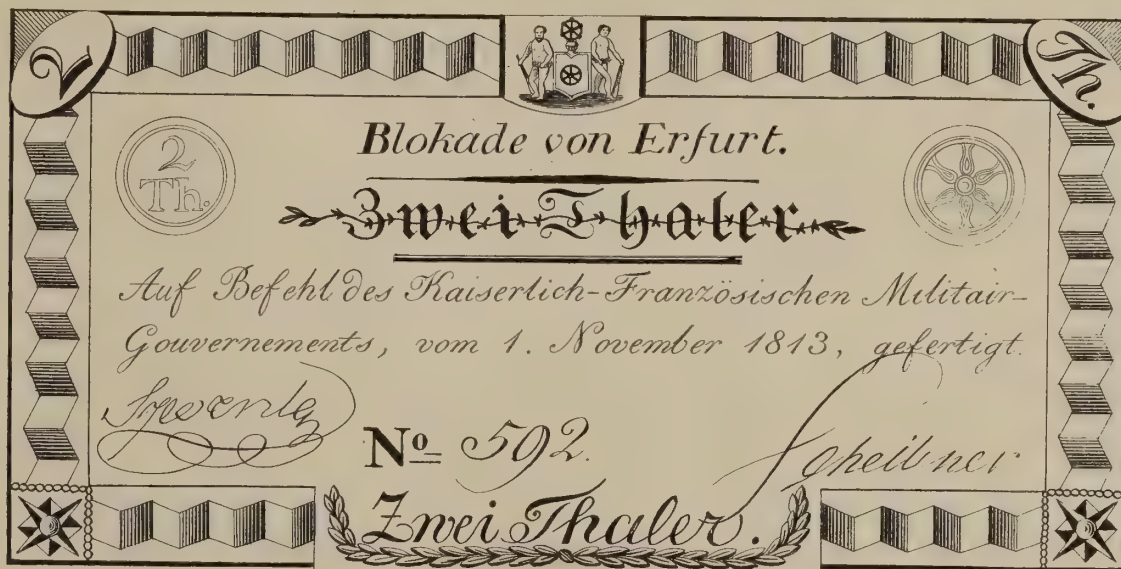 2
Th.
2
Th.
Blokade von Erfurt.
Zwei Thaler
Auf Befehl des Kaiserlich-Französischen Militair-
Gouvernements, vom 1. November 1813, gefertigt.
Scheibner
No 592.
Zwei Thaler.